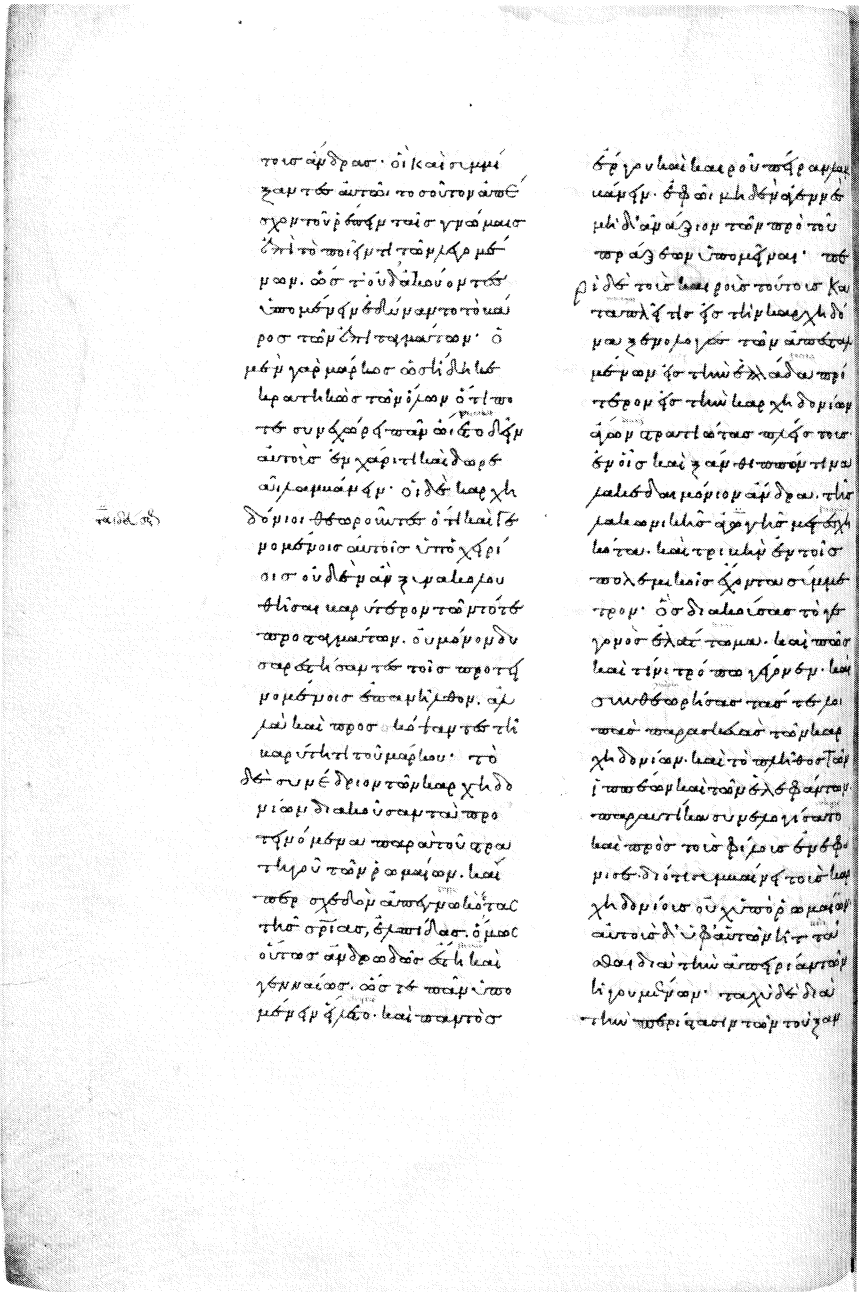 τοισ ἄνδρας· οἳ καὶ συμμί
ξαντες αὐτῶι τοσοῦτον ἀπέ
σχον τοῦ ῥέπειν ταῖς γνώμαις
ἐπὶ τὸ ποιεῖν τι τῶν λεγομέ
νων. ὥστ' οὐδ' ἀκούοντες
ὑπομένειν ἐδύναντο τὸ βά
ρος τῶν ἐπιταγμάτων· ὁ
μὲν γὰρ μάρκος ὡς ἤδη κε
κρατηκὼς τῶν ὅλων ὅτι πο
τε συνεχώρει πᾶν ὤιετο δεῖν
αὐτοὺς ἐν χάριτι καὶ δωρε
ᾶι λαμβάνειν· οἱ δὲ καρχη
δόνιοι θεωροῦντες ὅτι καὶ γε
νομένοις αὐτοῖς ὑποχειρί
οις οὐδὲν ἂν ξυνακολου
θῆσαι βαρύτερον τῶν τότε
προσταγμάτων. οὐ μόνον δυ
σαρεστήσαντες τοῖς προτει
νομένοις ἐπανῆλθον. ἀλ
λὰ καὶ προσκόψαντες τῆ
βαρύτητι τοῦ μάρκου· τὸ
δὲ συνέδριον τῶν καρχηδο
νίων διακοῦσαν τὰ προ
τεινόμενα παρὰ τοῦ στρα
τηγοῦ τῶν ῥωμαίων. καί
περ σχεδὸν ἀπεγνωκότας
τῆς σρίας, ἐλπίδας. ὅμως
οὕτως ἀνδρωδῶς ἔστη καὶ
γενναίως. ὥστε πᾶν ὑπο
μένειν εἵλετο. καὶ παντὸς
ἔργου καὶ καιροῦ πεῖραν λαμ
βάνειν. ἐφ' ὧι μηδὲν ἀγεννὲς
μηδ' ἀνάξιον τῶν πρὸ τοῦ
πράξεων ὑπομεῖναι· πε
ρὶ δὲ τοὺς καιροὺς τούτους κα
ταπλεῖ τις εἰς τὴν καρχηδό
να ξενολόγος τῶν ἀπεσταλ
μένων εἰς τὴν ἑλλάδα πρό
τερον εἰς τὴν καρχηδονίων
ἄγων στρατιώτας πλείστους
ἐν οἷς καὶ ξάνθιππόν τινα
λακεδαιμόνιον ἄνδρα. τῆς
λακωνικῆς ἀγωγῆς μετεσχη
κότα. καὶ τριβὴν ἐν τοῖς
πολεμικοῖς ἔχοντα σύμμε
τρον· ὃς διακούσας τὸ γε
γονὸς ἐλάττωμα. καὶ πῶς
καὶ τίνι τρόπω γέγονεν. καὶ
συνθεωρήσας τάς τε λοι
πὰς παρασκευὰς τῶν καρ
χηδονίων. καὶ τὸ πλῆθος τῶν
ἱππέων καὶ τῶν ἐλεφάντων.
παραυτίκα συνελογίσατο
καὶ πρὸς τοὺς φίλους ἐνεφά
νισε. διότι συμβαίνει τοὺς καρ
χηδονίους οὐχ ὑπὸ ῥωμαίων
αὐτοὺς δ' ὑφ' αὑτῶν ἡττᾶ
σθαι διὰ τὴν ἀπειρίαν τῶν
ἡγουμένων· ταχὺ δὲ διὰ
τὴν περίστασιν τῶν τοῦ ξαν